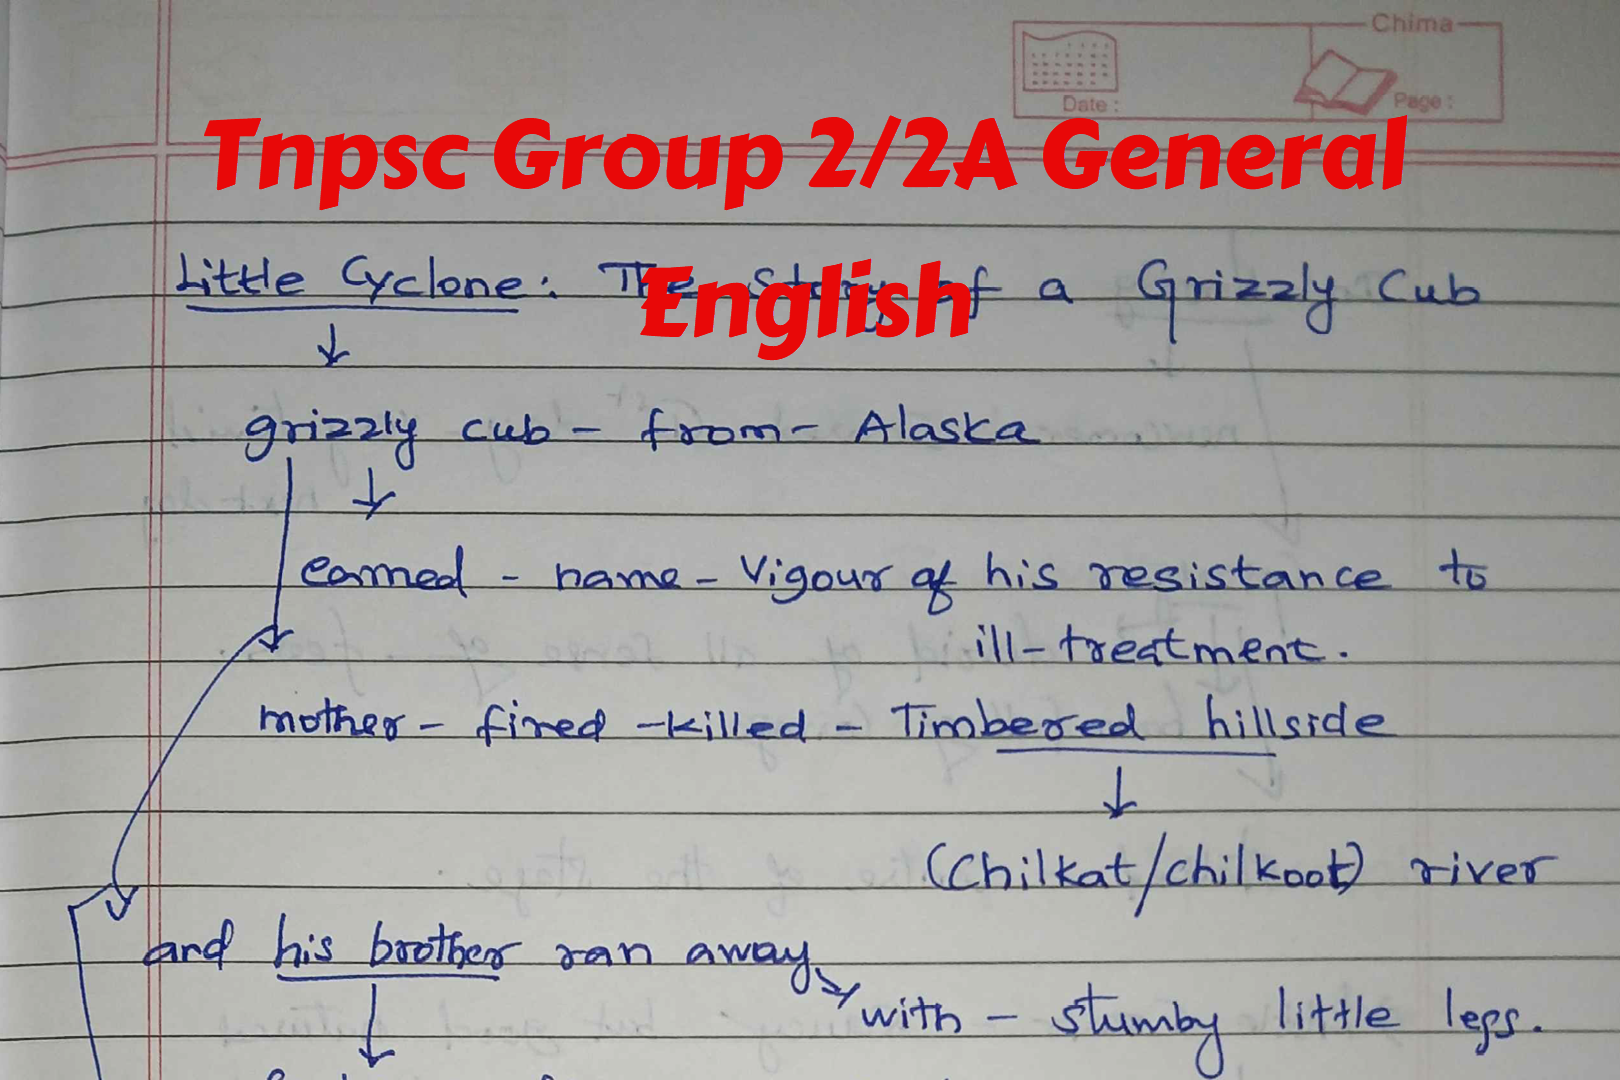 Chima
Date :
Page :
Tnpsc Group 2/2A General
English
Little Cyclone: The Story of a Grizzly Cub
grizzly cub - from - Alaska
earned - name - Vigour of his resistance to
ill-treatment.
mother - fired - killed - Timbered hillside
(Chilkat/chilkoot) river
and his brother ran away
with - stumby little legs.